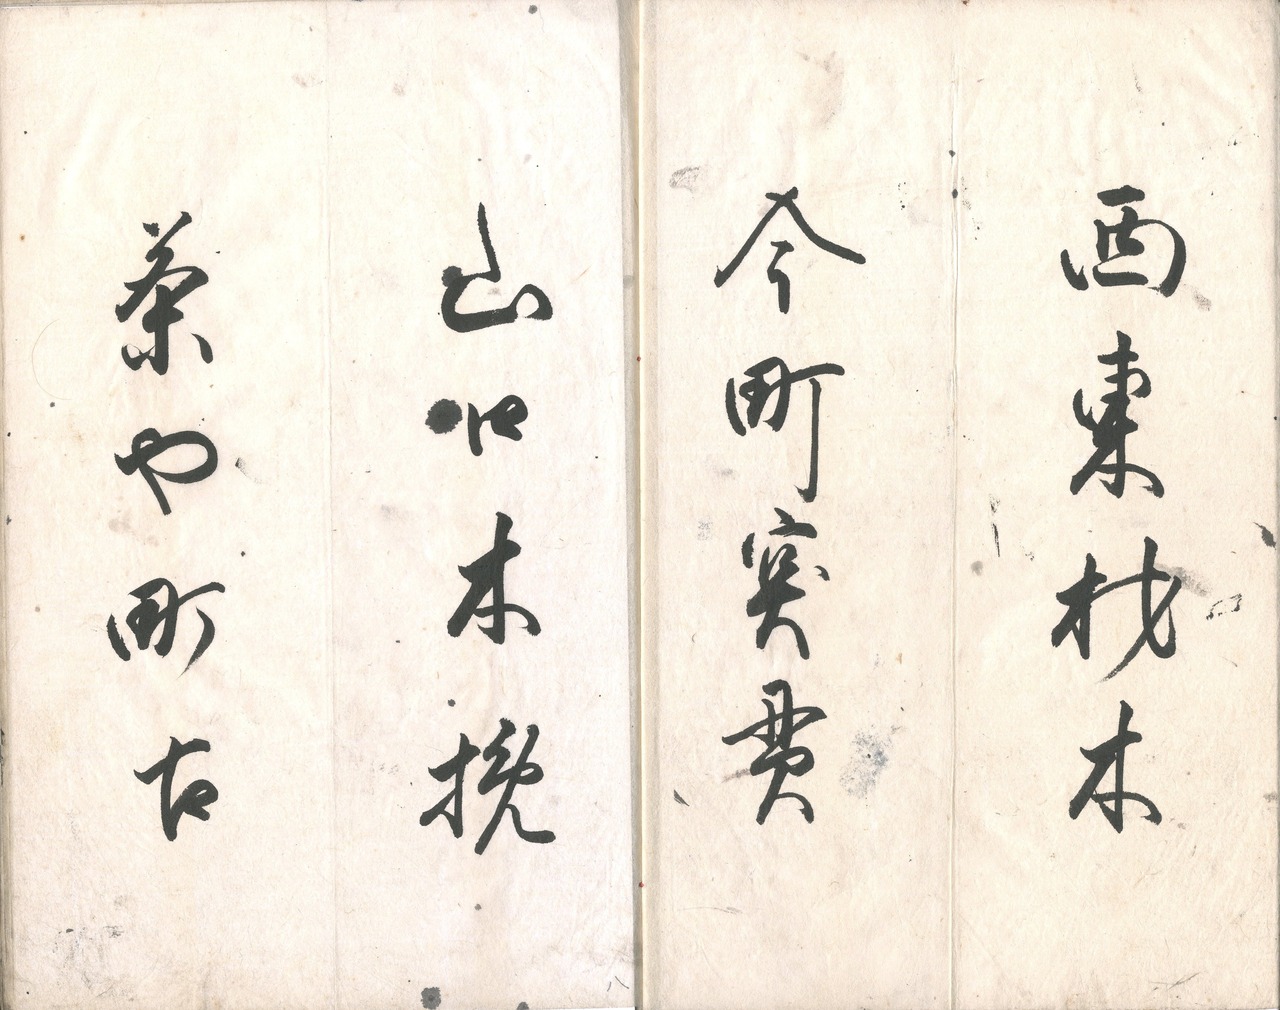 西東材木
今町実貫
山口木挽
茶や町古